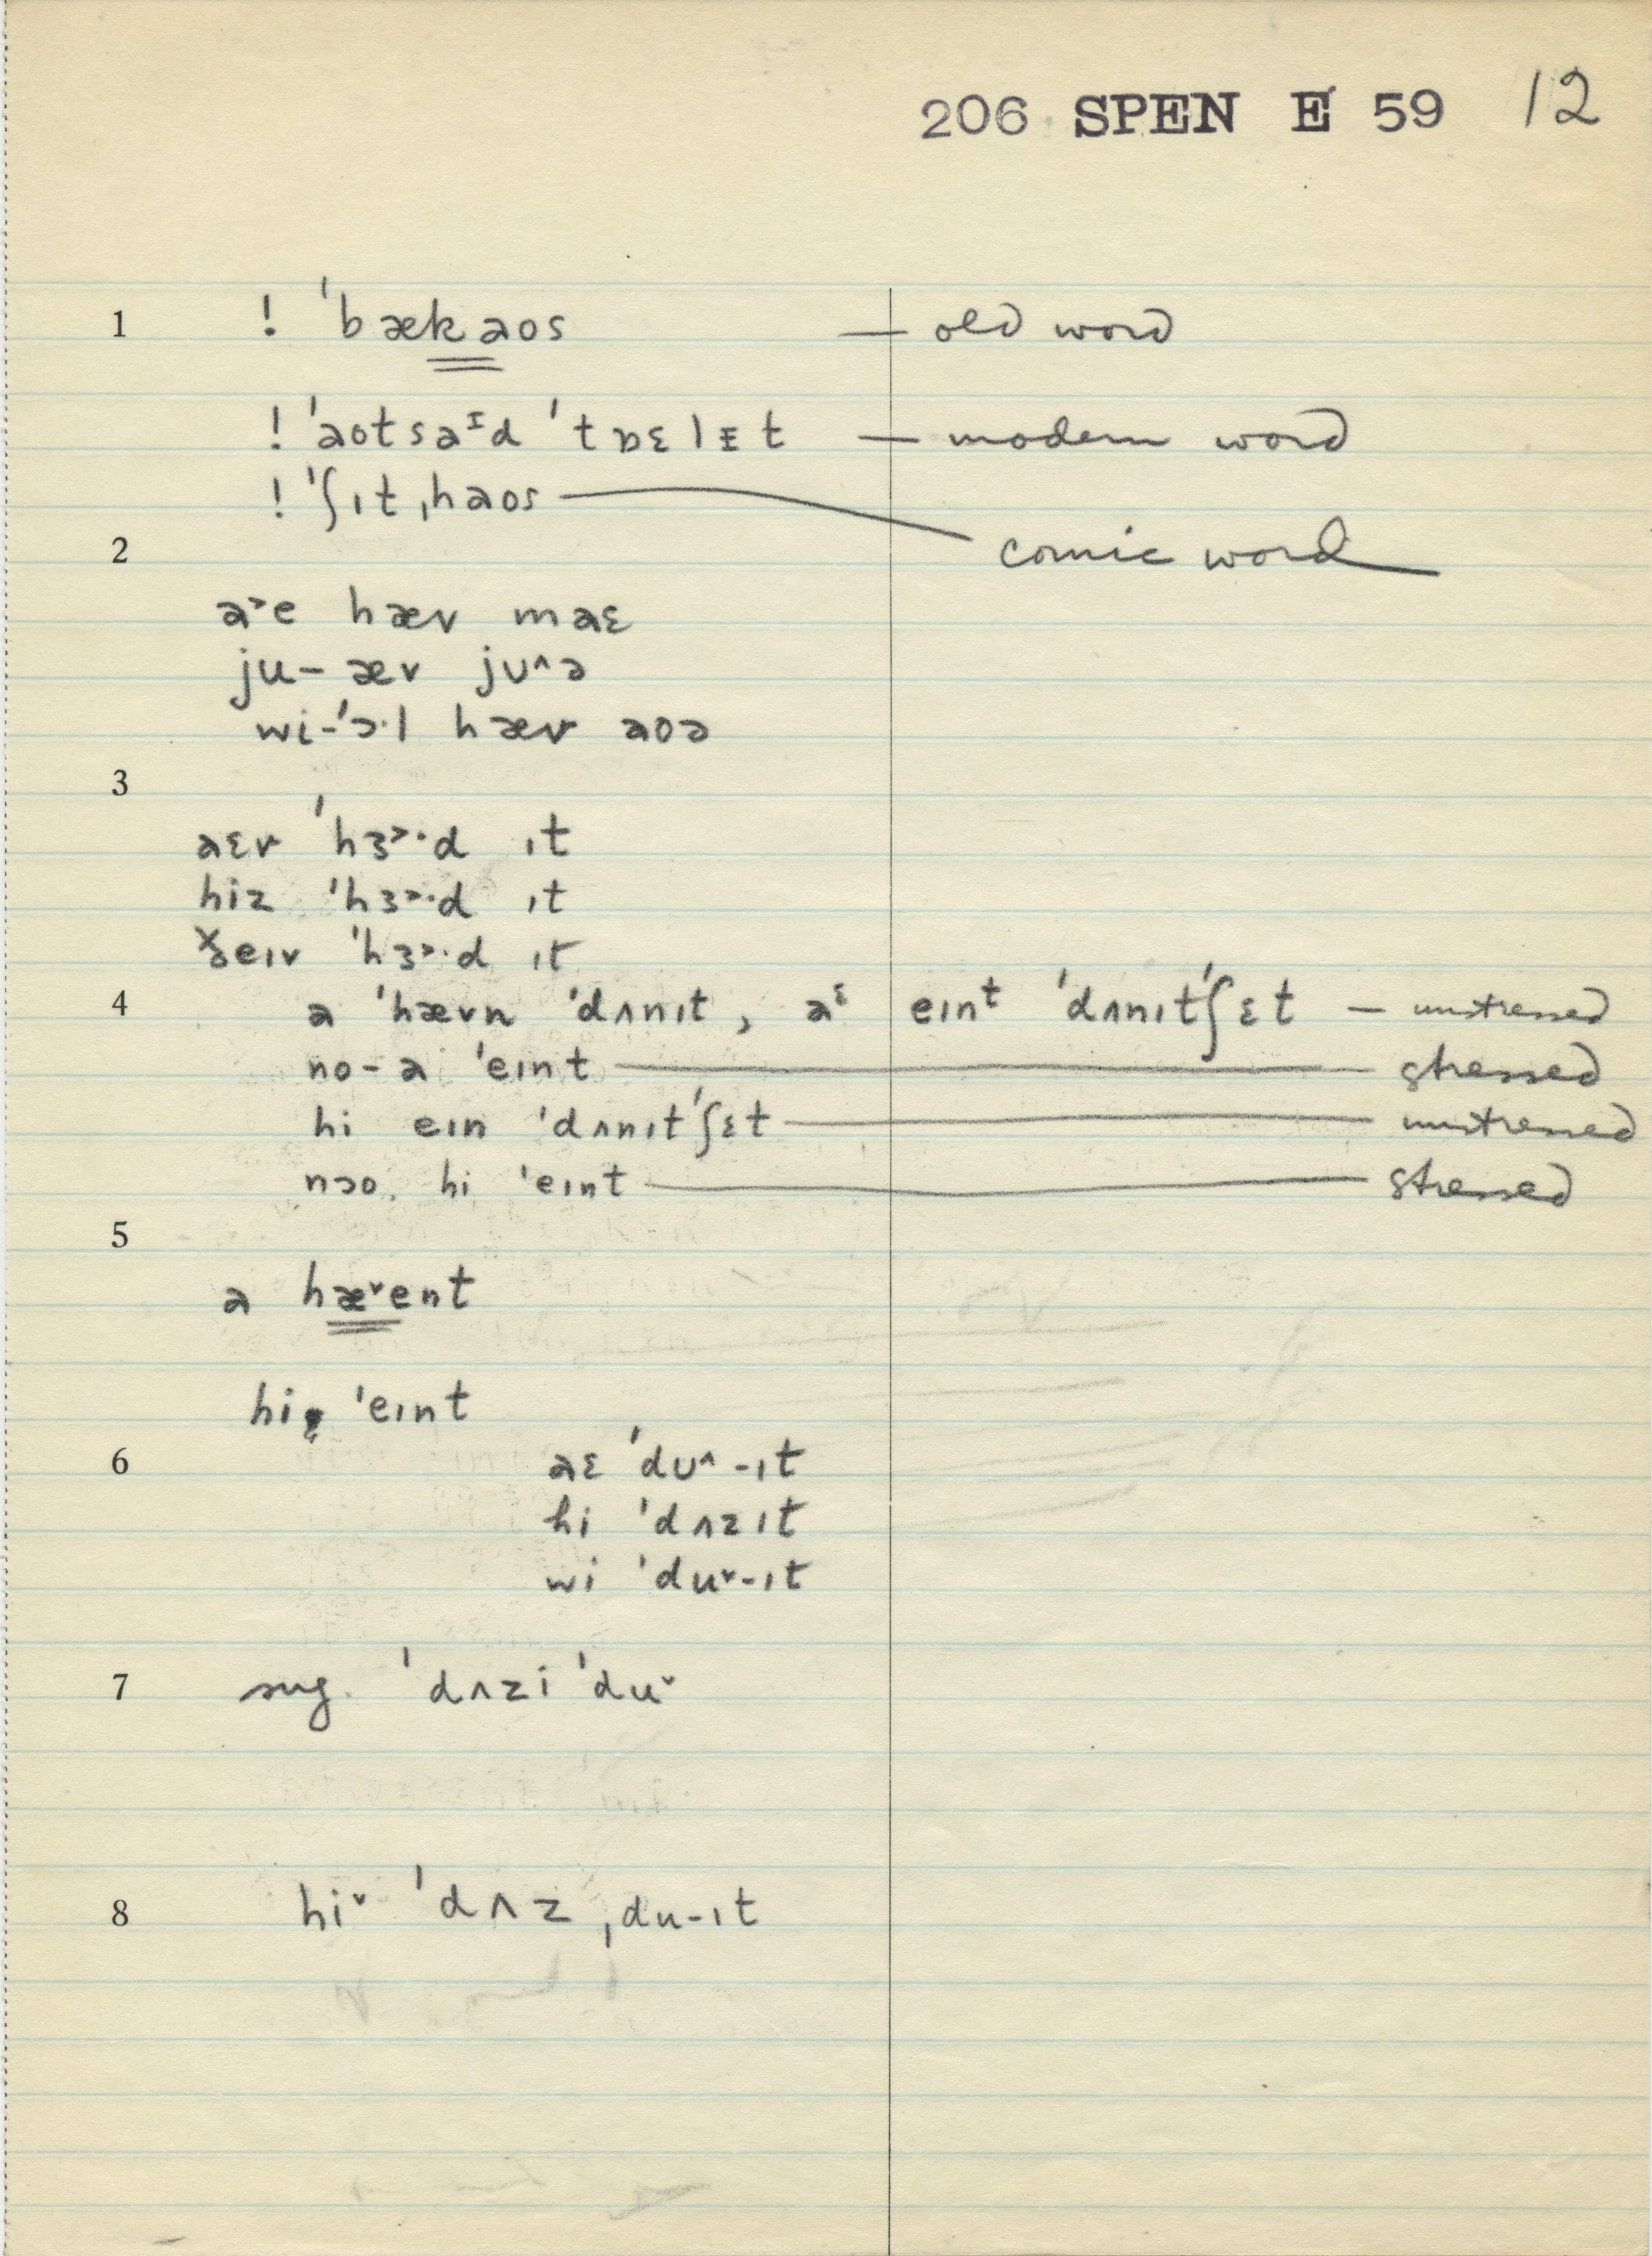 206 SPEN E 59 12
1 ! ˈbækaos — old word
! ˈaotsaᶦd ˈtɒɛlɪt — modern word
! ˈʃɪtˌhaos — comic word
2
a˃e hæv maɛ
ju- æv jʊ^ə
wi-ˈɔ·l hæv aoə
3
aɛv ˈhɜ˃·d ɪt
hiz ˈhɜ˃·d ɪt
ðeɪv ˈhɜ˃·d ɪt
4 a ˈhævn ˈdʌnɪt, aᵋ eɪnᵗ ˈdʌnɪtˈʃɛt — unstressed
no-a ˈeɪnt — stressed
hi eɪn ˈdʌnɪtˈʃɛt — unstressed
nɔo. hi ˈeɪnt — stressed
5
a hæ˅ent
hi ˈeɪnt
6 aɛ ˈdʊ^-ɪt
hi ˈdʌzɪt
wi ˈdu˅-ɪt
7 sug. ˈdʌzi ˈdu˅
8 hi˅ ˈdʌz ˌdu-ɪt